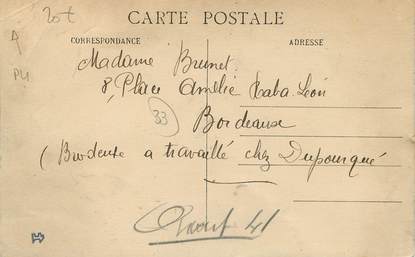 20t
CARTE POSTALE
A
PU
CORRESPONDANCE
ADRESSE
Madame Brunet
8, Place Amélie Raba-Léon
33
Bordeaux
(Brodeuse a travaillé chez Dupourqué
41